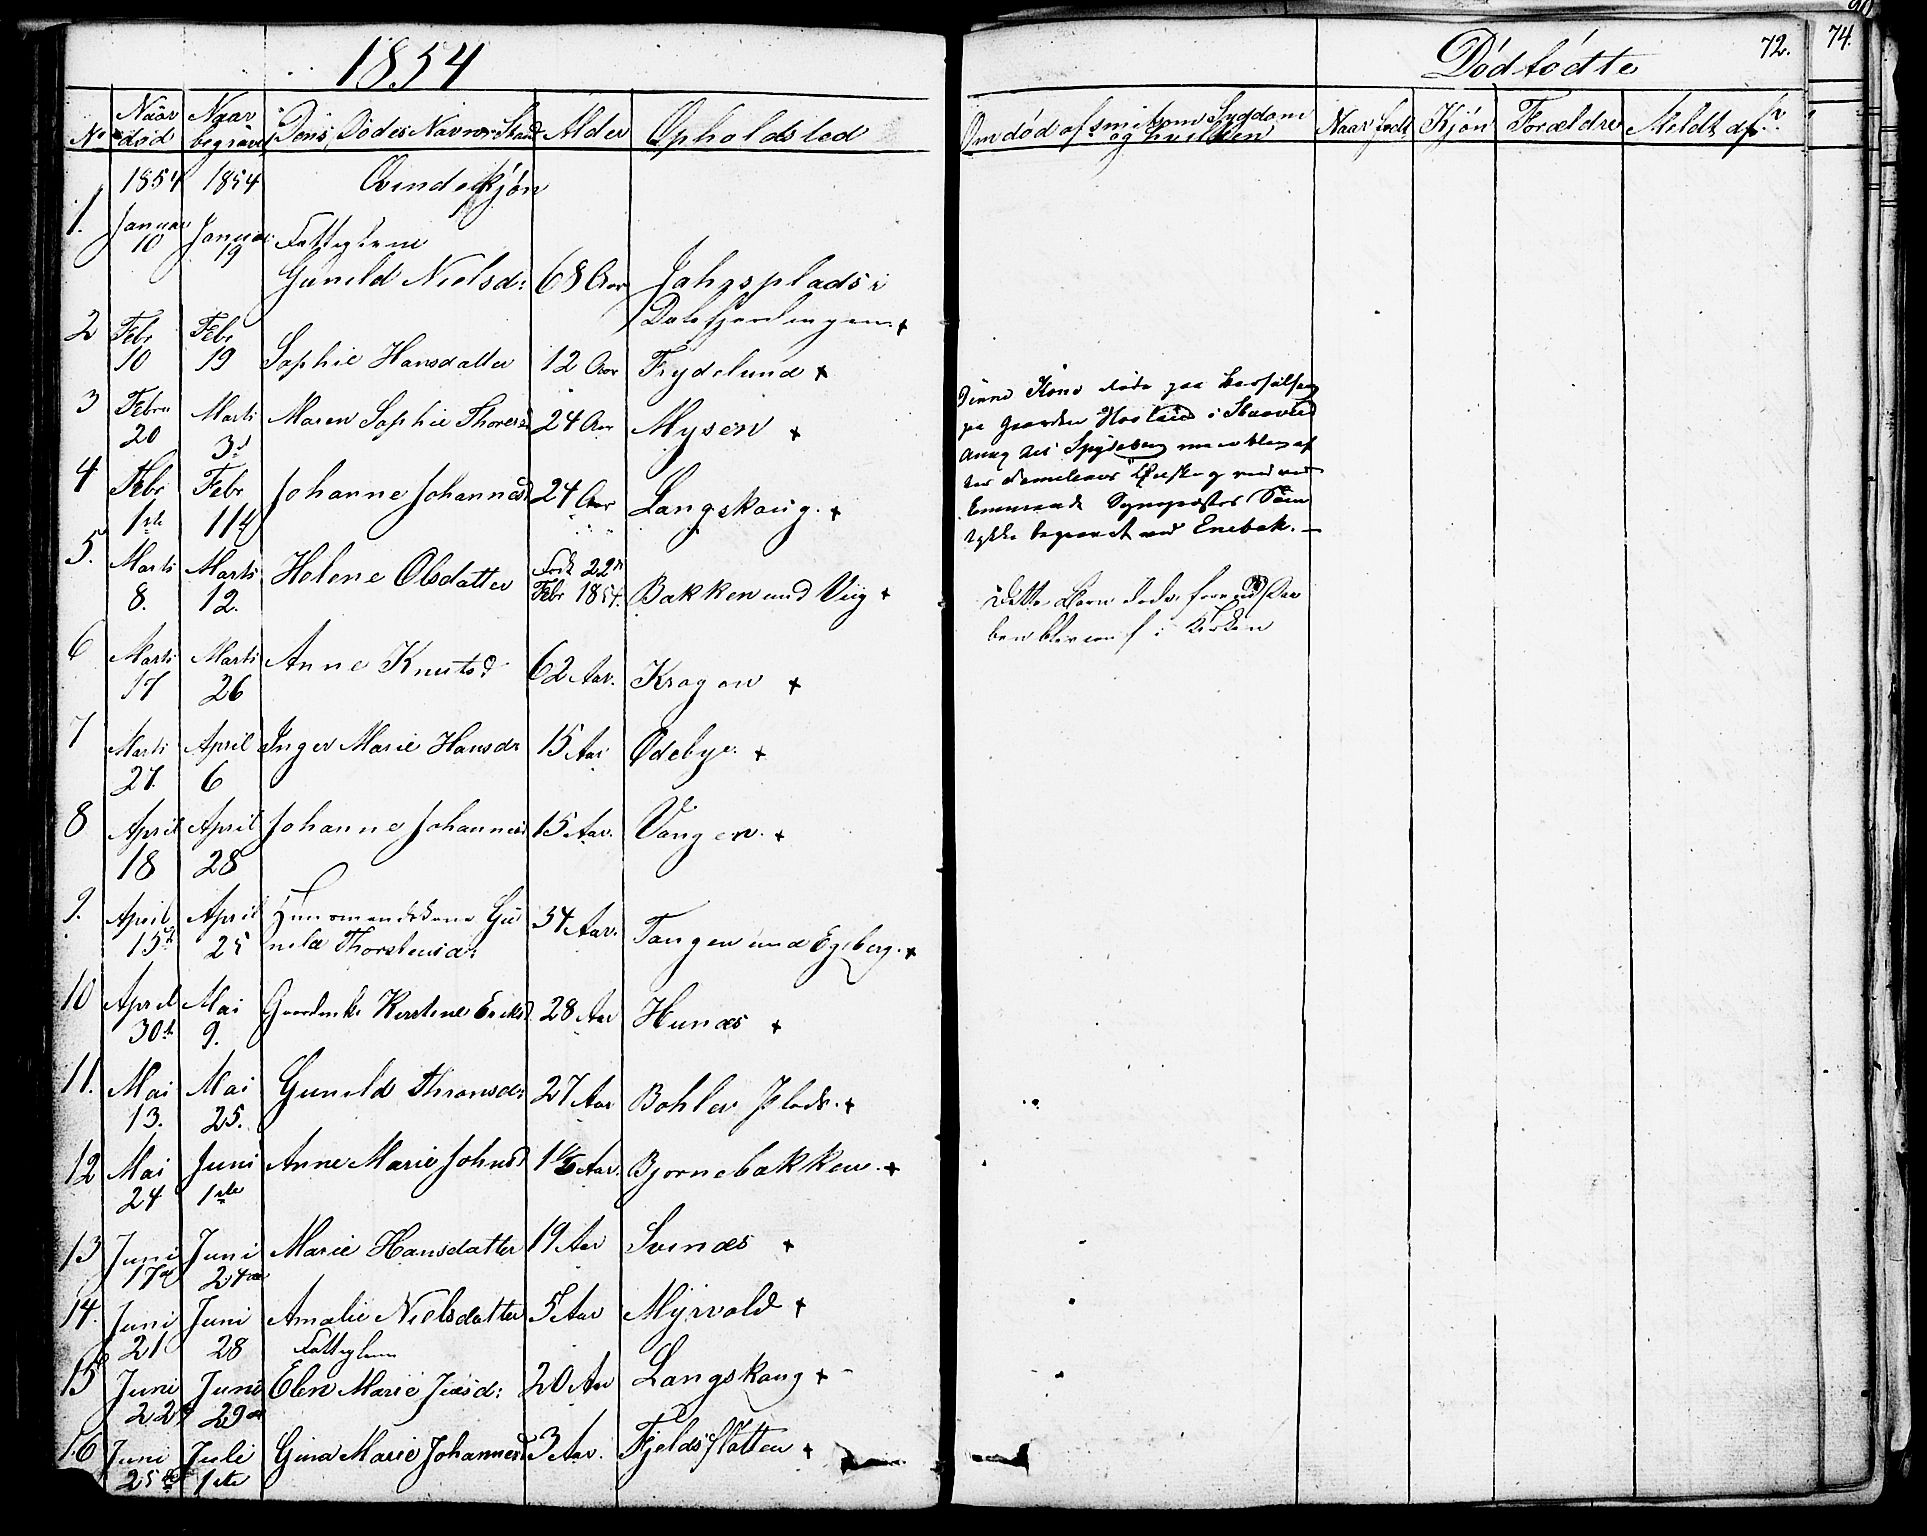 1854
No
Naar død
Naar begravet
Dens Dødes Navn og Stand
Alder
Opholdsted
1854 1854 Qvindekjøn
1. Januar 10 Januar 19 Fattiglem
Gunild Nielsd: 68 Aar Jahrsplads i
Dalefjerdingen +
2 Febr 10 Febr 19 Sophie Hansdatter 12 Aar Frydelund +
3 Febru 20 Marts 3d Maren Sophie Thoresd 24 Aar Mysen +
4 Febr 1ste Febr 11te Johanne Johannesd 24 Aar Langskaug. +
5. Marts 8. Marts 12. Helene Olsdatter Født 22n Febr 1854. Bakken und Viig +
6 Marts 17 Marts 26 Anne Knutsd 62 Aar. Kragen +
7 Marts 27. April 6 Inger Marie Hansdr 15 Aar Ødebye. +
8 April 18 April 28 Johanne Johannesd 15 Aar. Vangen. +
9. April 15de April 25 Huusmandskone Gu
nild Thorstensd: 34 Aar. Tangen und Egeberg. +
10 April 30te Mai 9. Gaardmkr Kerstine Eriksd 28 Aar Hunæs +
11. Mai 13. Mai 25. Gunild Thronsdr 27 Aar Bohler Plads. +
12 Mai 24 Juni 1ste Anne Marie Johnsd 1 1/2 Aar. Bjørnebakken. +
13 Juni 17de Juni 24de Marie Hansdatter 19 Aar Svinæs +
14. Juni 21 Juni 28 Amalie Nielsdatter 5 Aar Myrvold +
Fattiglem
15 Juni 22 Juni 29de Elen Marie Jensd: 20 Aar Langskaug +
16 Juni 25de Juli 1ste Gina Marie Johannesd 3 Aar. Fjeldsflatten +
Dødfødte 72. 74.
Om død af smitsom Sygdom
og hvilken
Naar født
Kjøn
Forældre
Meldt af
Denne Kone døde paa
paa Gaarden i
Annex til Spydeberg men blev af
ved ved
kommende Sognepræsters Sam
tykke begravet ved Enebak. —
Dette Barn døde forend Daa
ben blev i Kirken